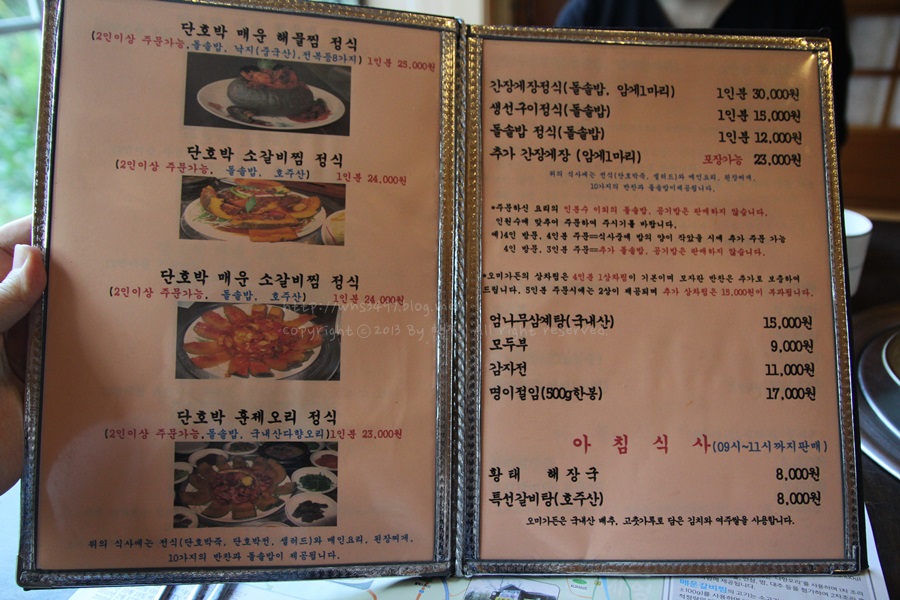 단호박 매운 해물찜 정식
(2인이상 주문가능,돌솥밥, 낙지(중국산),전복등8가지) 1인분 25,000원
단호박 소갈비찜 정식
(2인이상 주문가능, 돌솥밥, 호주산) 1인분 24,000원
단호박 매운 소갈비찜 정식
(2인이상 주문가능, 돌솥밥, 호주산) 1인분 24,000원
단호박 훈제오리 정식
(2인이상 주문가능,돌솥밥, 국내산다향오리)1인분 23,000원
위의 식사에는 전식(단호박죽, 단호박전, 샐러드)와 메인요리, 된장찌개,
10가지의 반찬과 돌솥밥이 제공됩니다.
간장게장정식(돌솥밥, 암게1마리) 1인분 30,000원
생선구이정식(돌솥밥) 1인분 15,000원
돌솥밥 정식(돌솥밥) 1인분 12,000원
추가 간장게장 (암게1마리) 포장가능 23,000원
위의 식사에는 전식(단호박죽, 샐러드)와 메인요리, 된장찌개,
10가지의 반찬과 돌솥밥이제공됩니다.
*주문하신 요리의 인분수 이외의 돌솥밥, 공기밥은 판매하지 않습니다.
인원수에 맞추어 주문하여 주시기를 바랍니다.
예)4인 방문, 4인분 주문==식사중에 밥의 양이 작았을 시에 추가 주문 가능
4인 방문, 3인분 주문==추가 돌솥밥, 공기밥은 판매하지 않습니다.
*오미가든의 상차림은 4인분 1상차림이 기본이며 모자란 반찬은 추가로 보충하여
드립니다. 5인분 주문시에는 2상이 제공되며 추가 상차림은 15,000원이 부과됩니다.
엄나무삼계탕(국내산) 15,000원
모두부 9,000원
감자전 11,000원
명이절임(500g한봉) 17,000원
아 침 식 사(09시~11시까지판매)
황태 해장국 8,000원
특선갈비탕(호주산) 8,000원
오미가든은 국내산 배추, 고춧가루로 담은 김치와 여주쌀을 사용합니다.
copyright ⓒ 2013 By All right reserved
매운갈비찜